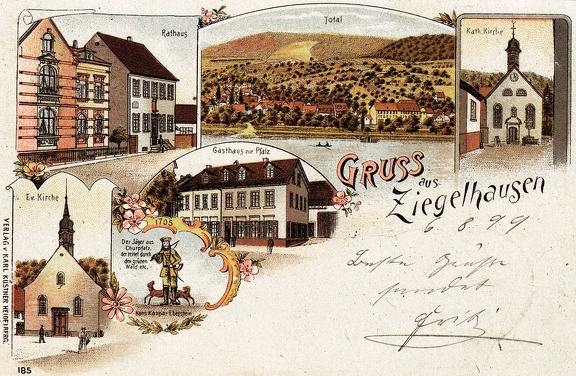 Rathaus
Total
Kath. Kirche
Gasthaus zur Pfalz
GRUSS
aus
Ziegelhausen
6 8. 99
Beste Grüße
sendet
Fritz
Ev. Kirche
1705
Der Jäger aus
Churpfalz,
der reitet durch
den grünen
Wald etc.
Hans Kaspar Eberstein
VERLAG v. KARL KÜSTNER HEIDELBERG.
185